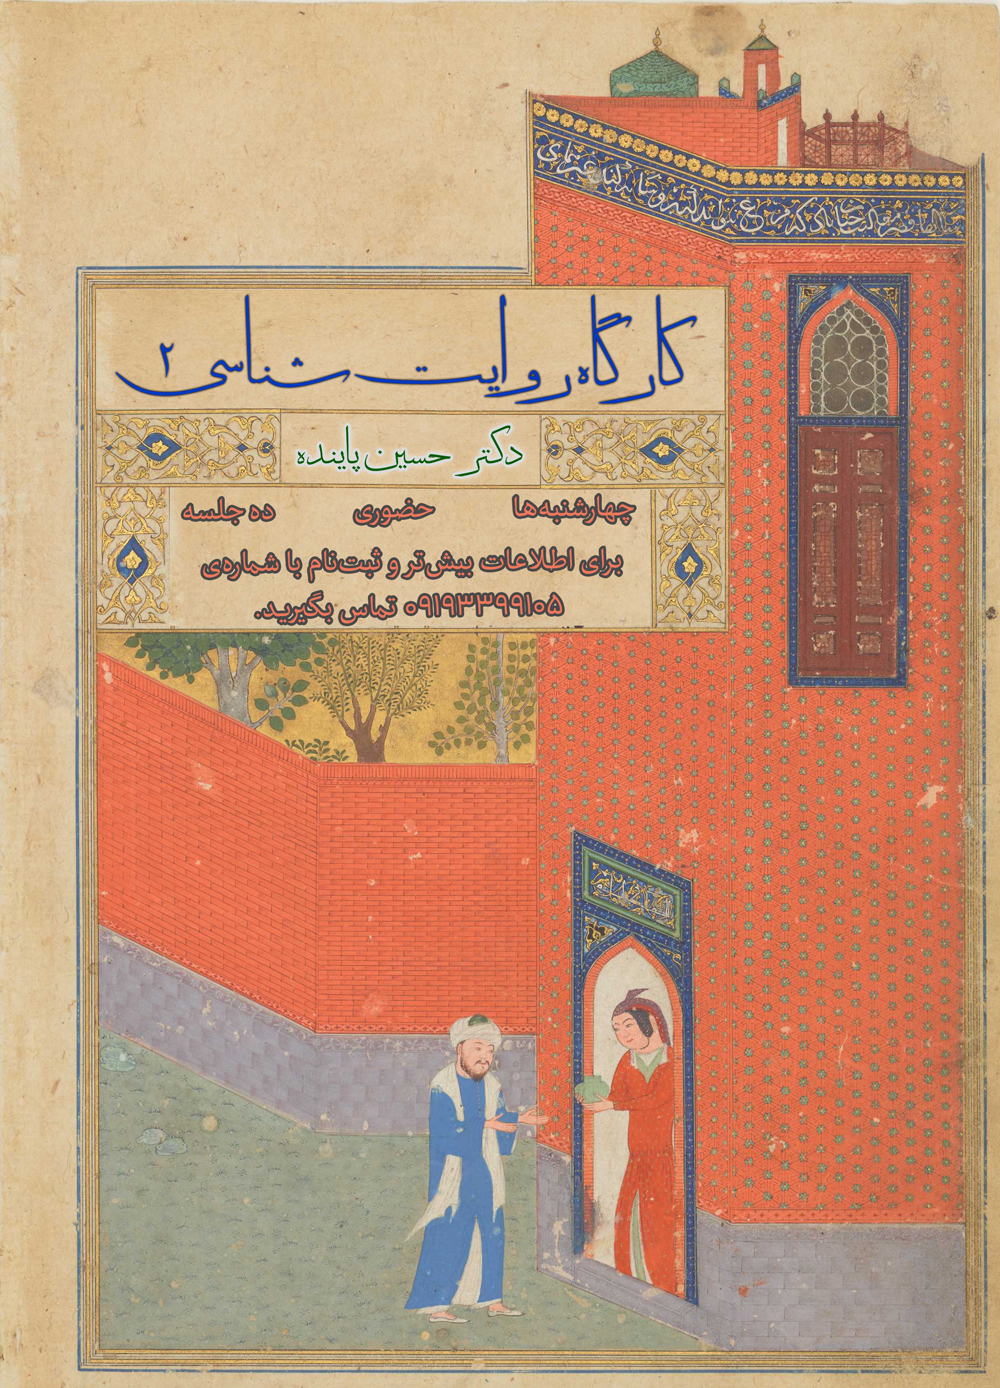 کارگاه روایت شناسی ۲
دکتر حسین پاینده
چهارشنبه‌ها حضوری ده جلسه
برای اطلاعات بیش‌تر و ثبت‌نام با شماره‌ی
۰۹۱۹۳۳۹۹۱۰۵ تماس بگیرید.